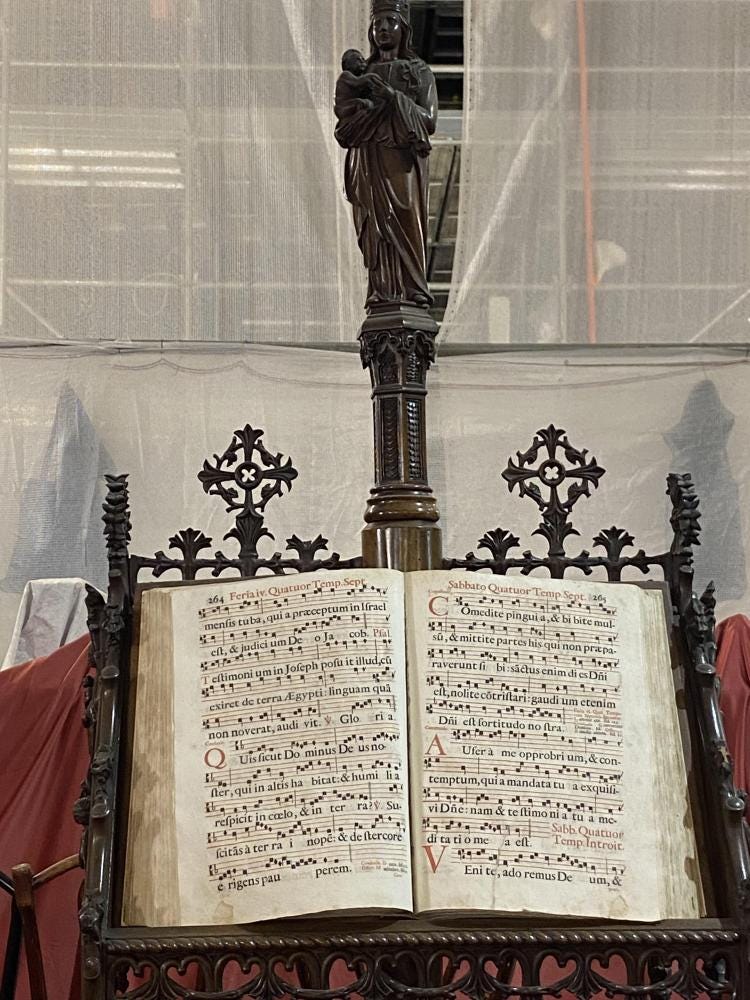 264 Feria iv. Quatuor Temp. Sept.
mensis tuba, qui a præceptum in Israel
est, & judici um De o Ja cob. Psal.
T estimoni um in Joseph posu it illud, cũ
exiret de terra Ægypti: linguam quã
non noverat, audi vit. ℣. Glo ri a.
Graduale.
Q Uis sicut Do minus De us no-
ster, qui in altis ha bitat: & humi li a
respicit in cœlo, & in ter ra? ℣. Su-
scitãs à ter ra i nopẽ: & de stercore
e rigens pau perem.
Sabbato Quatuor Temp. Sept. 265
C Omedite pingui a, & bi bite mul-
sũ, & mittite partes his qui non præpa-
raverunt si bi: sãctus enim di es Dñi
est, nolite cõtristari: gaudi um etenim
Dñi est fortitudo no stra.
A Ufer à me opprobri um, & con-
temptum, qui a mandata tu a exquisi-
vi Dñe: nam & te stimo ni a tu a me-
di ta ti o me a est.
Sabb. Quatuor
Temp. Introit.
V Eni te, ado remus De um, &